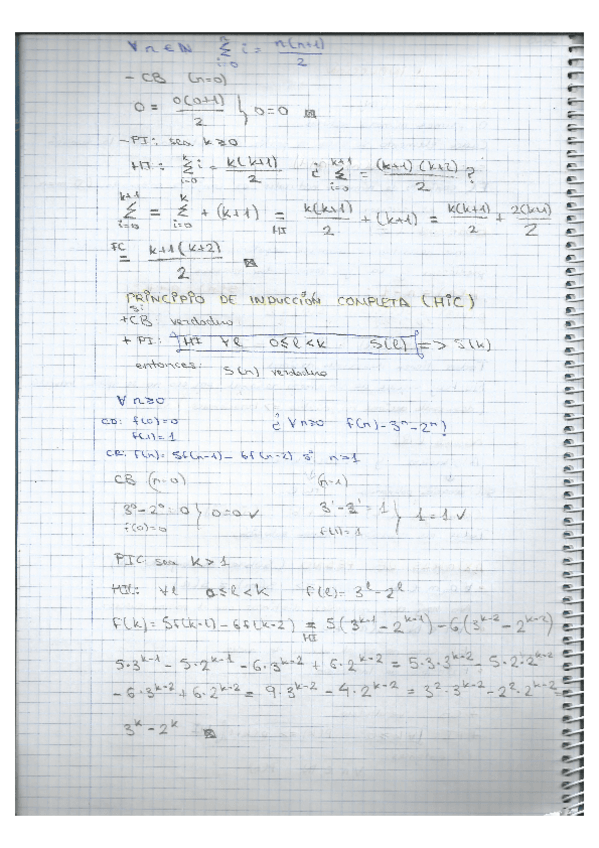 ∀ n ∈ N  Σ_{i=0}^{n} i = n(n+1)/2
- CB (n=0)
0 = 0(0+1)/2 } 0=0 ⊠
- PI: sea k≥0
HI: Σ_{i=0}^{k} i = k(k+1)/2  ¿ Σ_{i=0}^{k+1} = (k+1)(k+2)/2 ?
Σ_{i=0}^{k+1} = Σ_{i=0}^{k} + (k+1) =_{HI} k(k+1)/2 + (k+1) = k(k+1)/2 + 2(k+1)/2
FC = k+1(k+2)/2 ⊠
PRINCIPIO DE INDUCCIÓN COMPLETA (HIC)
Si
+CB verdadero
+ PI: HI ∀l 0≤l<k S(l) => S(k)
entonces: S(n) verdadero
∀ n≥0
CB: f(0)=0  ¿ ∀n≥0 f(n)=3^n-2^n?
f(1)=1
CR: f(n)= 5f(n-1) - 6f(n-2) si n>1
CB (n=0)  (n=1)
3^0-2^0=0 } 0=0 ✓  3^1-2^1=1 } 1=1 ✓
f(0)=0  f(1)=1
PIC: sea k>1
HI: ∀l 0≤l<k f(l)=3^l-2^l
f(k)=5f(k-1)-6f(k-2) =_{HI} 5(3^{k-1}-2^{k-1})-6(3^{k-2}-2^{k-2})
5·3^{k-1}-5·2^{k-1}-6·3^{k-2}+6·2^{k-2}=5·3·3^{k-2}-5·2·2^{k-2}
-6·3^{k-2}+6·2^{k-2}=9·3^{k-2}-4·2^{k-2}=3^2·3^{k-2}-2^2·2^{k-2}
3^k-2^k ⊠